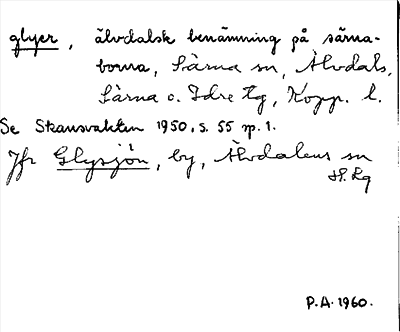 glyer, älvdalsk benämning på särna-
borna, Särna sn, Älvdals,
Särna o. Idre tg, Kopp. l.
Se Skansvakten 1950, s. 55 sp. 1.
Jfr Glysjön, by, Älvdalens sn
H. Lg
P.A. 1960.